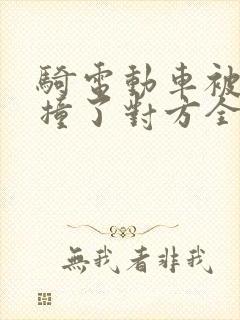 騎電動車被
撞了對方全
無我者非我